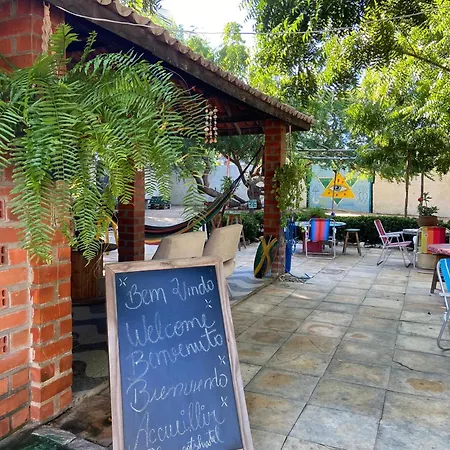 Bem Vindo
Welcome
Benvenuto
Bienvenido
Accueillir